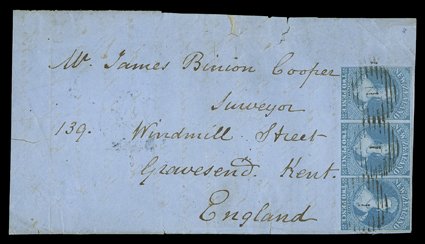 Mr. James Binion Cooper
Surveyor
139. Windmill Street
Gravesend. Kent.
England